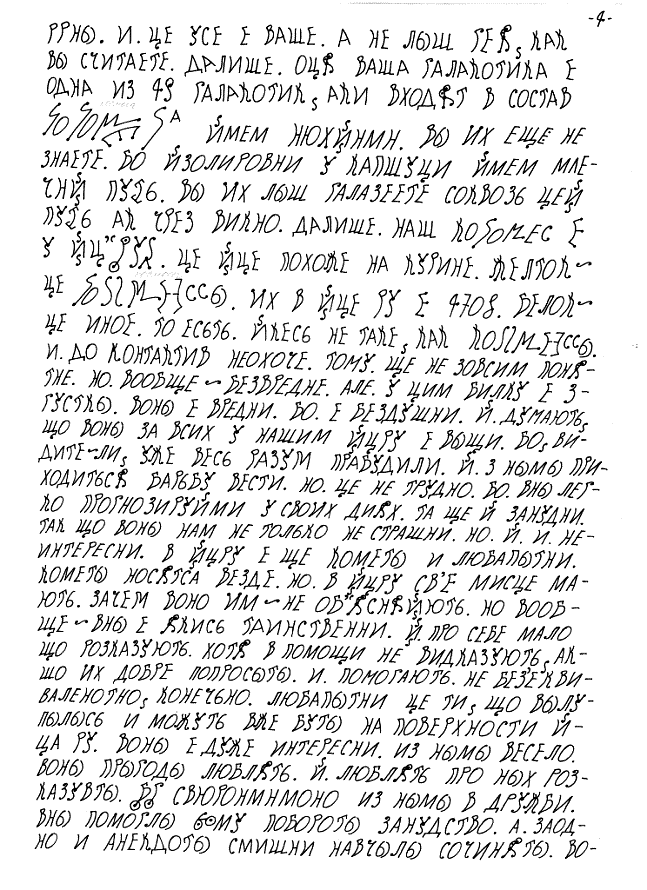 -4-
РРНЫ. И. ЦЕ УСЕ Е ВАШЕ. А НЕ ЛЫШ ТЕЯ, КАК
ВЫ СЧИТАЕТЕ. ДАЛИШЕ. ОЦЯ ВАША ГАЛАКОТИКА Е
ОДНА ИЗ 49 ГАЛАКОТИК, АКИ ВХОДЯТ В СОСТАВ
ЙМЕМ НЮХЙНМН. ВЫ ИХ ЕЩЕ НЕ
ЗНАЕТЕ. БО ЙЗОЛИРОВНИ У КАПШУЦИ ЙМЕМ МЛЕ-
ЧНЙ ПУТЬ. ВЫ ИХ ЛЫШ ГАЛАЗЕЕТЕ СОКВОЗЬ ЦЕЙ
ПУТЬ АК ЧРЕЗ ВИКНО. ДАЛИШЕ. НАШ Е
У ЦЕ ЙЦЕ ПОХОЖЕ НА КУРИНЕ. ЖЕЛТОК~
ЦЕ ИХ В ЙЦЕ РУ Е 4708. БЕЛОК~
ЦЕ ИНОЕ. ТО ЕСЬТЬ. ЙКЕСЬ НЕ ТАКЕ, КАК
И. ДО КОНТАКТИВ НЕОХОЧЕ. ТОМУ. ЩЕ НЕ ЗОВСИМ ПОНЯ-
ТНЕ. НО. ВООБЩЕ~БЕЗВРЕДНЕ. АЛЕ. У ЦИМ БИЛКУ Е З-
ГУСТКЫ. ВОНЫ Е ВРЕДНИ. БО. Е БЕЗДУШНИ. Й. ДУМАЮТЬ,
ЩО ВОНЫ ЗА ВСИХ У НАШИМ ЙЦРУ Е ВЫЩИ. БО, ВИ-
ДИТЕ~ЛИ, УЖЕ ВЕСЬ РАЗУМ ПРАБУДИЛИ. Й. З НЫМЫ ПРИ-
ХОДИТЬСЯ БАРЬБУ ВЕСТИ. НО. ЦЕ НЕ ТРУДНО. БО. ВНЫ ЛЕГ-
КО ПРОГНОЗИРУЙМИ У СВОИХ ДИЯХ. ТА ЩЕ Й ЗАНУДНИ.
ТАК ЩО ВОНЫ НАМ НЕ ТОЛЬКО НЕ СТРАШНИ. НО. Й. И. НЕ-
ИНТЕРЕСНИ. В ЙЦРУ Е ЩЕ КОМЕТЫ И ЛЮБАПЫТНИ.
КОМЕТЫ НОСЯТСА ВЕЗДЕ. НО. В ЙЦРУ СВ'Е МИСЦЕ МА-
ЮТЬ. ЗАЧЕМ ВОНО ИМ~НЕ ОБ"ЯСНЯЙЮТЬ. НО ВООБ-
ЩЕ~ВНЫ Е ЯКИСЬ ТАИНСТВЕННИ. Й ПРО СЕБЕ МАЛО
ЩО РОЗКАЗУЮТЬ. ХОТЯ В ПОМОЩИ НЕ ВИДКАЗУЮТЬ, АК-
ЩО ИХ ДОБРЕ ПОПРОСЫТЫ. И. ПОМОГАЮТЬ. НЕ БЕЗЕКВИ-
ВАЛЕНОТНО, КОНЕЧЬНО. ЛЮБАПЫТНИ ЦЕ ТИ, ЩО ВЫЛУ-
ПЫЛЫСЬ И МОЖУТЬ ВЖЕ БУТЫ НА ПОВЕРХНОСТИ Й-
ЦА РУ. ВОНЫ Е ДУЖЕ ИНТЕРЕСНИ. ИЗ НЫМЫ ВЕСЕЛО.
ВОНЫ ПРЫГОДЫ ЛЮБЛЯТЬ. Й. ЛЮБЛЯТЬ ПРО НЫХ РОЗ-
КАЗУВТЫ. СВЮРОНМНМОНО ИЗ НЫМЫ В ДРУЖБИ.
ВНЫ ПОМОГЛЫ ПОБОРОТЫ ЗАНУДСТВО. А. ЗАОД-
НО И АНЕКДОТЫ СМИШНИ НАВЧЫЛЫ СОЧИНЯТЫ. ВО-